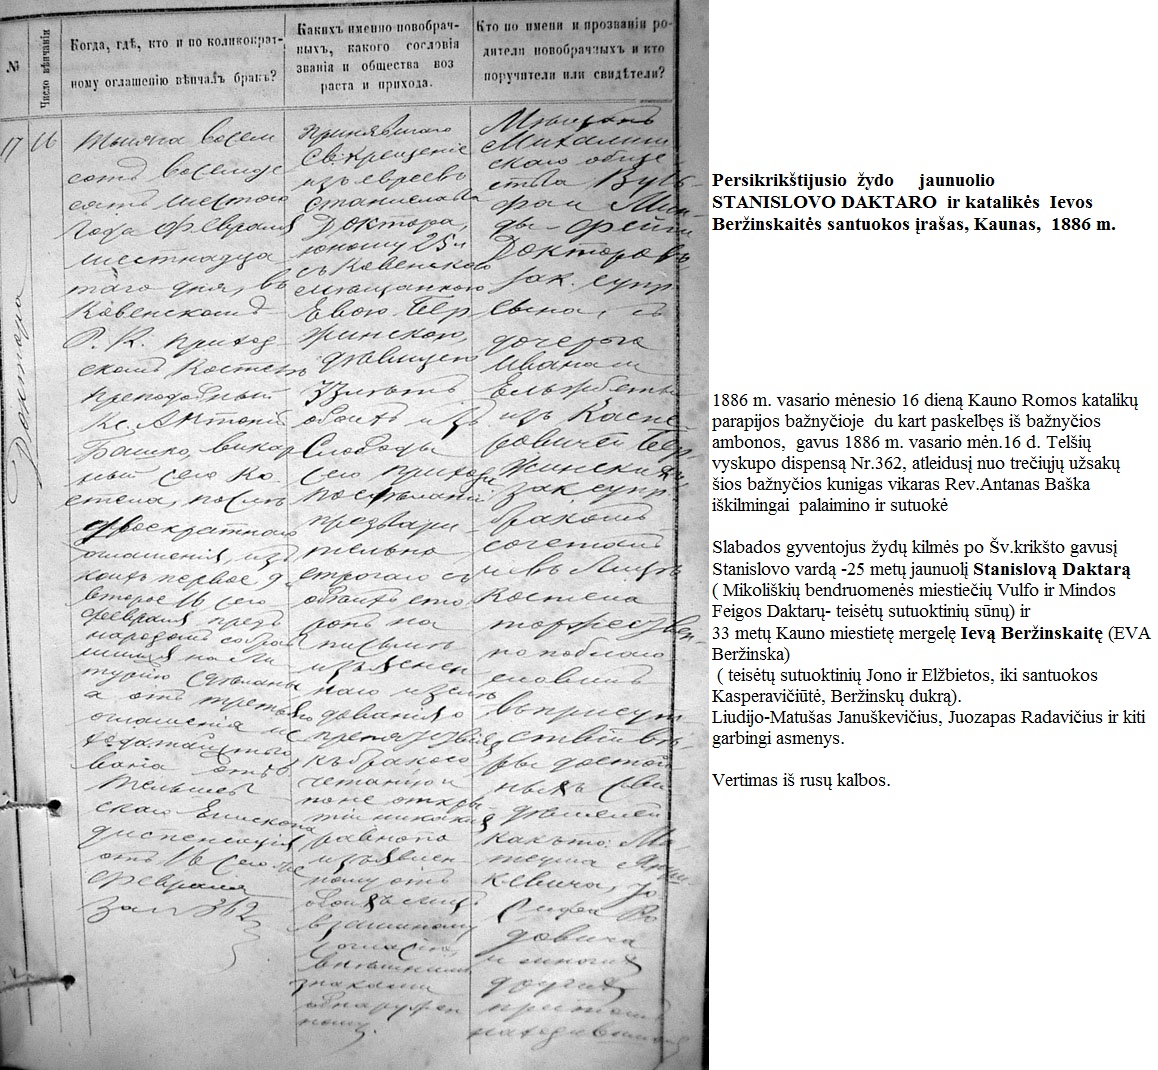 №
Число вѣнчанія
Когда, гдѣ, кто и по коликократ-
ному оглашенію вѣнчалъ бракъ?
Какихъ именно новобрач-
ныхъ, какого сословія
званія и общества воз
раста и прихода.
Кто по имени и прозванію ро-
дители новобрачныхъ и кто
поручители или свидѣтели?
17
16
Доктора
Тысяча восем
сотъ восемде
сятъ шестого
Года Февраля
шестнадца
таго дня, въ
Ковенскомъ
Р. К. приход
скомъ Костелѣ
преподобный
Кс. Антоній
Башко, викар
ный сего Ко
стела, послѣ
двоекратнаго
оглашенія изъ
второе 16 сего
Февраля предъ
народомъ
а отъ третьяго
оглашенія
Тельшев
скаго Епископа
диспенсація
отъ 16 сего
Февраля
за № 362
принявшаго
Св. крещеніе
изъ евреевъ
Станислава
Доктора,
юношу 25 л
съ Ковенскою
мѣщанкою
Евою Бер
жинскою,
дѣвицею
33 лѣтъ
обоихъ изъ
Слободы
сего прихода
по сдѣланіи
предвари
тельно
строгаго
объ сто
ронъ на
письмѣ
къ брако
четанію и
никакихъ
равно по
изъявлен
ному отъ
обоихъ лицъ
взаимному
согласію,
внѣшними
знаками
обнаружен
ному.
Мѣщанъ
Михалиш
скаго обще
ства Вуль
фа и Мин
ды-Фейги
Докторовъ
зак. супр
сына, съ
дочерью
Ивана и
Ельжбеты
изъ Каспе
ровичей Бер
жинскихъ,
зак. супр
бракомъ
сочеталъ
и въ лицѣ
Костела
торжествен
но поблаго
словилъ
въ присут
ствіи вѣ
ры достой
ныхъ сви
дѣтелей
какъ то: Ма
теуша Януш
кевича, Іо
сифа Ра
довича
и многихъ
другихъ
при томъ
находившихся
Persikrikštijusio žydo jaunuolio
STANISLOVO DAKTARO ir katalikės Ievos
Beržinskaitės santuokos įrašas, Kaunas, 1886 m.
1886 m. vasario mėnesio 16 dieną Kauno Romos katalikų
parapijos bažnyčioje du kart paskelbęs iš bažnyčios
ambonos, gavus 1886 m. vasario mėn.16 d. Telšių
vyskupo dispensą Nr.362, atleidusį nuo trečiųjų užsakų
šios bažnyčios kunigas vikaras Rev.Antanas Baška
iškilmingai palaimino ir sutuokė
Slabados gyventojus žydų kilmės po Šv.krikšto gavusį
Stanislovo vardą -25 metų jaunuolį Stanislovą Daktarą
( Mikoliškių bendruomenės miestiečių Vulfo ir Mindos
Feigos Daktarų- teisėtų sutuoktinių sūnų) ir
33 metų Kauno miestietę mergelę Ievą Beržinskaitę (EVA
Beržinska)
( teisėtų sutuoktinių Jono ir Elžbietos, iki santuokos
Kasperavičiūtė, Beržinskų dukrą).
Liudijo-Matušas Januškevičius, Juozapas Radavičius ir kiti
garbingi asmenys.
Vertimas iš rusų kalbos.